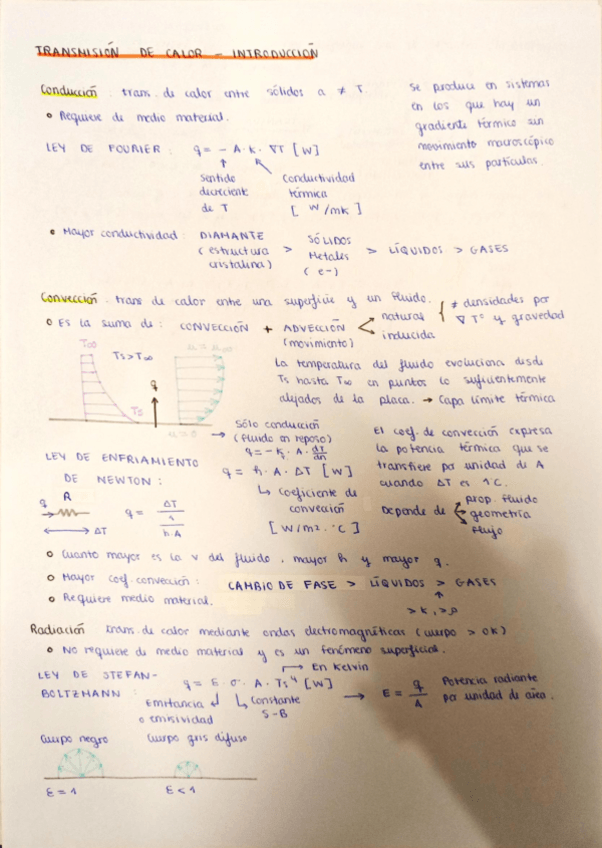 TRANSMISIÓN DE CALOR - INTRODUCCIÓN
Conducción: trans. de calor entre sólidos a ≠ T.
• Requiere de medio material.
Se produce en sistemas
en los que hay un
gradiente térmico sin
movimiento macroscópico
entre sus partículas.
LEY DE FOURIER: q = - A · k · ∇T [W]
Sentido
decreciente
de T
Conductividad
térmica
[W/mk]
• Mayor conductividad: DIAMANTE (estructura cristalina) > SÓLIDOS Metales (e-) > LÍQUIDOS > GASES
Convección: trans de calor entre una superficie y un fluido.
• Es la suma de: CONVECCIÓN + ADVECCIÓN (movimiento)
natural
inducida
≠ densidades por
∇ Tº y gravedad
T∞
Ts>T∞
q
Ts
u = 0
La temperatura del fluido evoluciona desde
Ts hasta T∞ en puntos lo suficientemente
alejados de la placa. → Capa límite térmica
→ Sólo conducción
(fluido en reposo)
q = - k · A · dT/dn
LEY DE ENFRIAMIENTO
DE NEWTON:
q = h · A · ΔT [W]
↳ Coeficiente de
convección
[W/m² · ºC]
El coef. de convección expresa
la potencia térmica que se
transfiere por unidad de A
cuando ΔT es 1ºC.
Depende de
prop. fluido
geometría
flujo
R
q
ΔT
q = ΔT / (1 / h·A)
• Cuanto mayor es la v del fluido, mayor h y mayor q.
• Mayor coef. convección: CAMBIO DE FASE > LÍQUIDOS > GASES
• Requiere medio material.
> k, > ρ
Radiación trans. de calor mediante ondas electromagnéticas (cuerpo > 0K)
• No requiere de medio material y es un fenómeno superficial.
→ En Kelvin
LEY DE STEFAN-
BOLTZMANN:
q = E · σ · A · Ts⁴ [W]
Emitancia
o emisividad
↳ Constante
S-B
→ E = q/A
Potencia radiante
por unidad de área.
Cuerpo negro
Cuerpo gris difuso
E = 1
E < 1